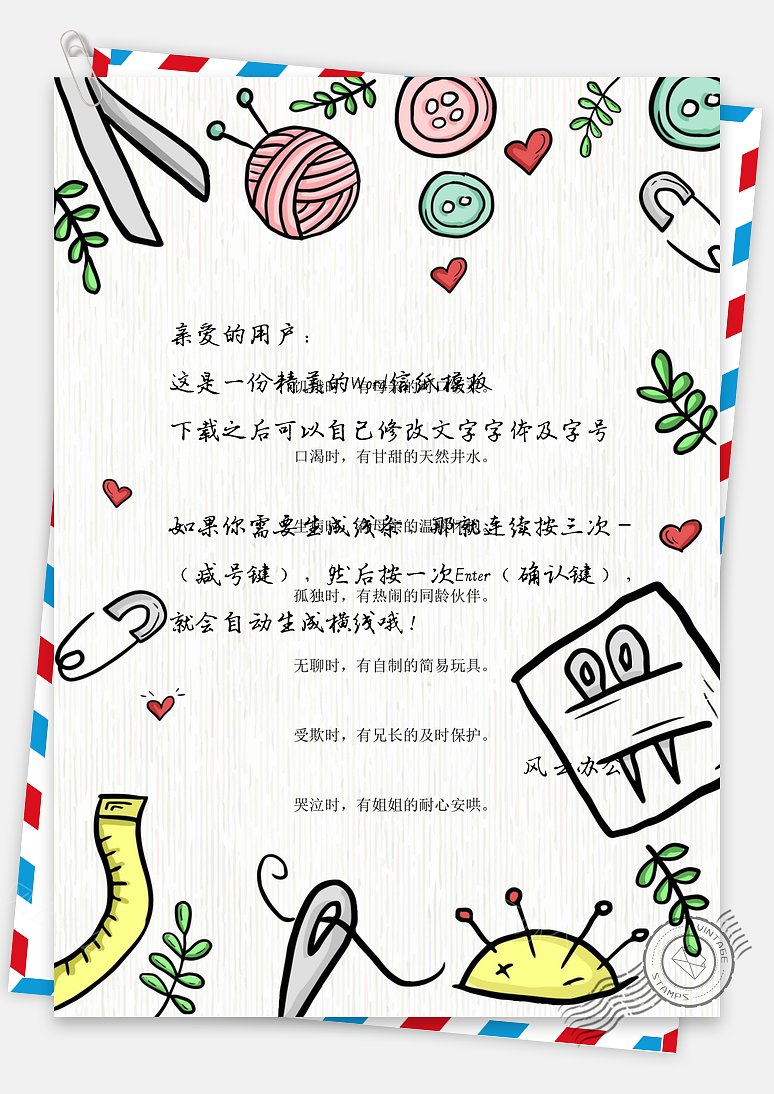 亲爱的用户：
这是一份精美的Word信纸模板
下载之后可以自己修改文字字体及字号
口渴时，有甘甜的天然井水。
如果你需要生成线条，那就连续按三次－
（减号键），然后按一次Enter（确认键），
孤独时，有热闹的同龄伙伴。
就会自动生成横线哦！
无聊时，有自制的简易玩具。
受欺时，有兄长的及时保护。
风云办公
哭泣时，有姐姐的耐心安哄。
VINTAGE
STAMPS